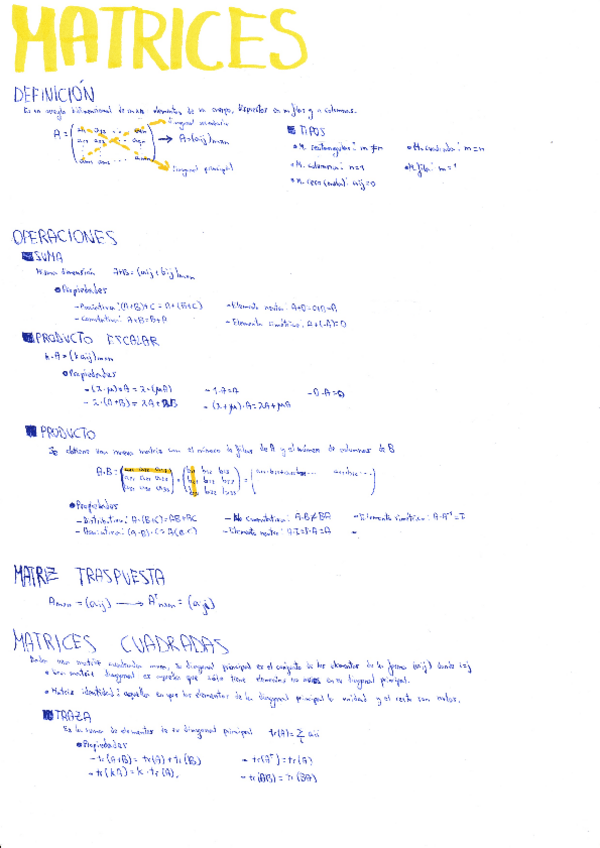 MATRICES
DEFINICIÓN
Es un arreglo bidimensional de elementos de un cuerpo, dispuestos en m filas y n columnas.
Diagonal secundaria
A = → A=(aij)mxn
Diagonal principal
TIPOS
M. rectangular: m≠n
M. cuadrada: m=n
M. columna: n=1
M. fila: m=1
M. cero (nula): aij=0
OPERACIONES
SUMA
Misma dimensión A+B=(aij+bij)mxn
Propiedades
- Asociativa: (A+B)+C=A+(B+C)
- Elemento neutro: A+0=0+A=A
- Conmutativa: A+B=B+A
- Elemento simétrico: A+(-A)=0
PRODUCTO ESCALAR
k·A=(k aij)mxn
Propiedades
- (λ·μ)·A=λ·(μA)
- 1·A=A
- 0·A=0
- λ·(A+B)=λA+λB
- (λ+μ)·A=λA+μA
PRODUCTO
Se obtiene una nueva matriz con el número de filas de A y el número de columnas de B
A·B=
Propiedades
- Distributiva: A·(B+C)=AB+AC
- No conmutativa: A·B≠BA
- Elemento simétrico: A·A⁻¹=I
- Asociativa: (A·B)·C=A(B·C)
- Elemento neutro: A·I=I·A=A
MATRIZ TRASPUESTA
Amxn=(aij) → Aᵗnxm=(aji)
MATRICES CUADRADAS
Dada una matriz cuadrada nxn, su diagonal principal es el conjunto de los elementos de la forma (aij) donde i=j
Una matriz diagonal es aquella que sólo tiene elementos no nulos en su diagonal principal.
Matriz identidad: aquella en que los elementos de la diagonal principal la unidad y el resto son nulos.
TRAZA
Es la suma de elementos de su diagonal principal tr(A)=Σ aii
Propiedades
- tr(A+B)=tr(A)+tr(B)
- tr(Aᵗ)=tr(A)
- tr(kA)=k·tr(A).
- tr(AB)=tr(BA)